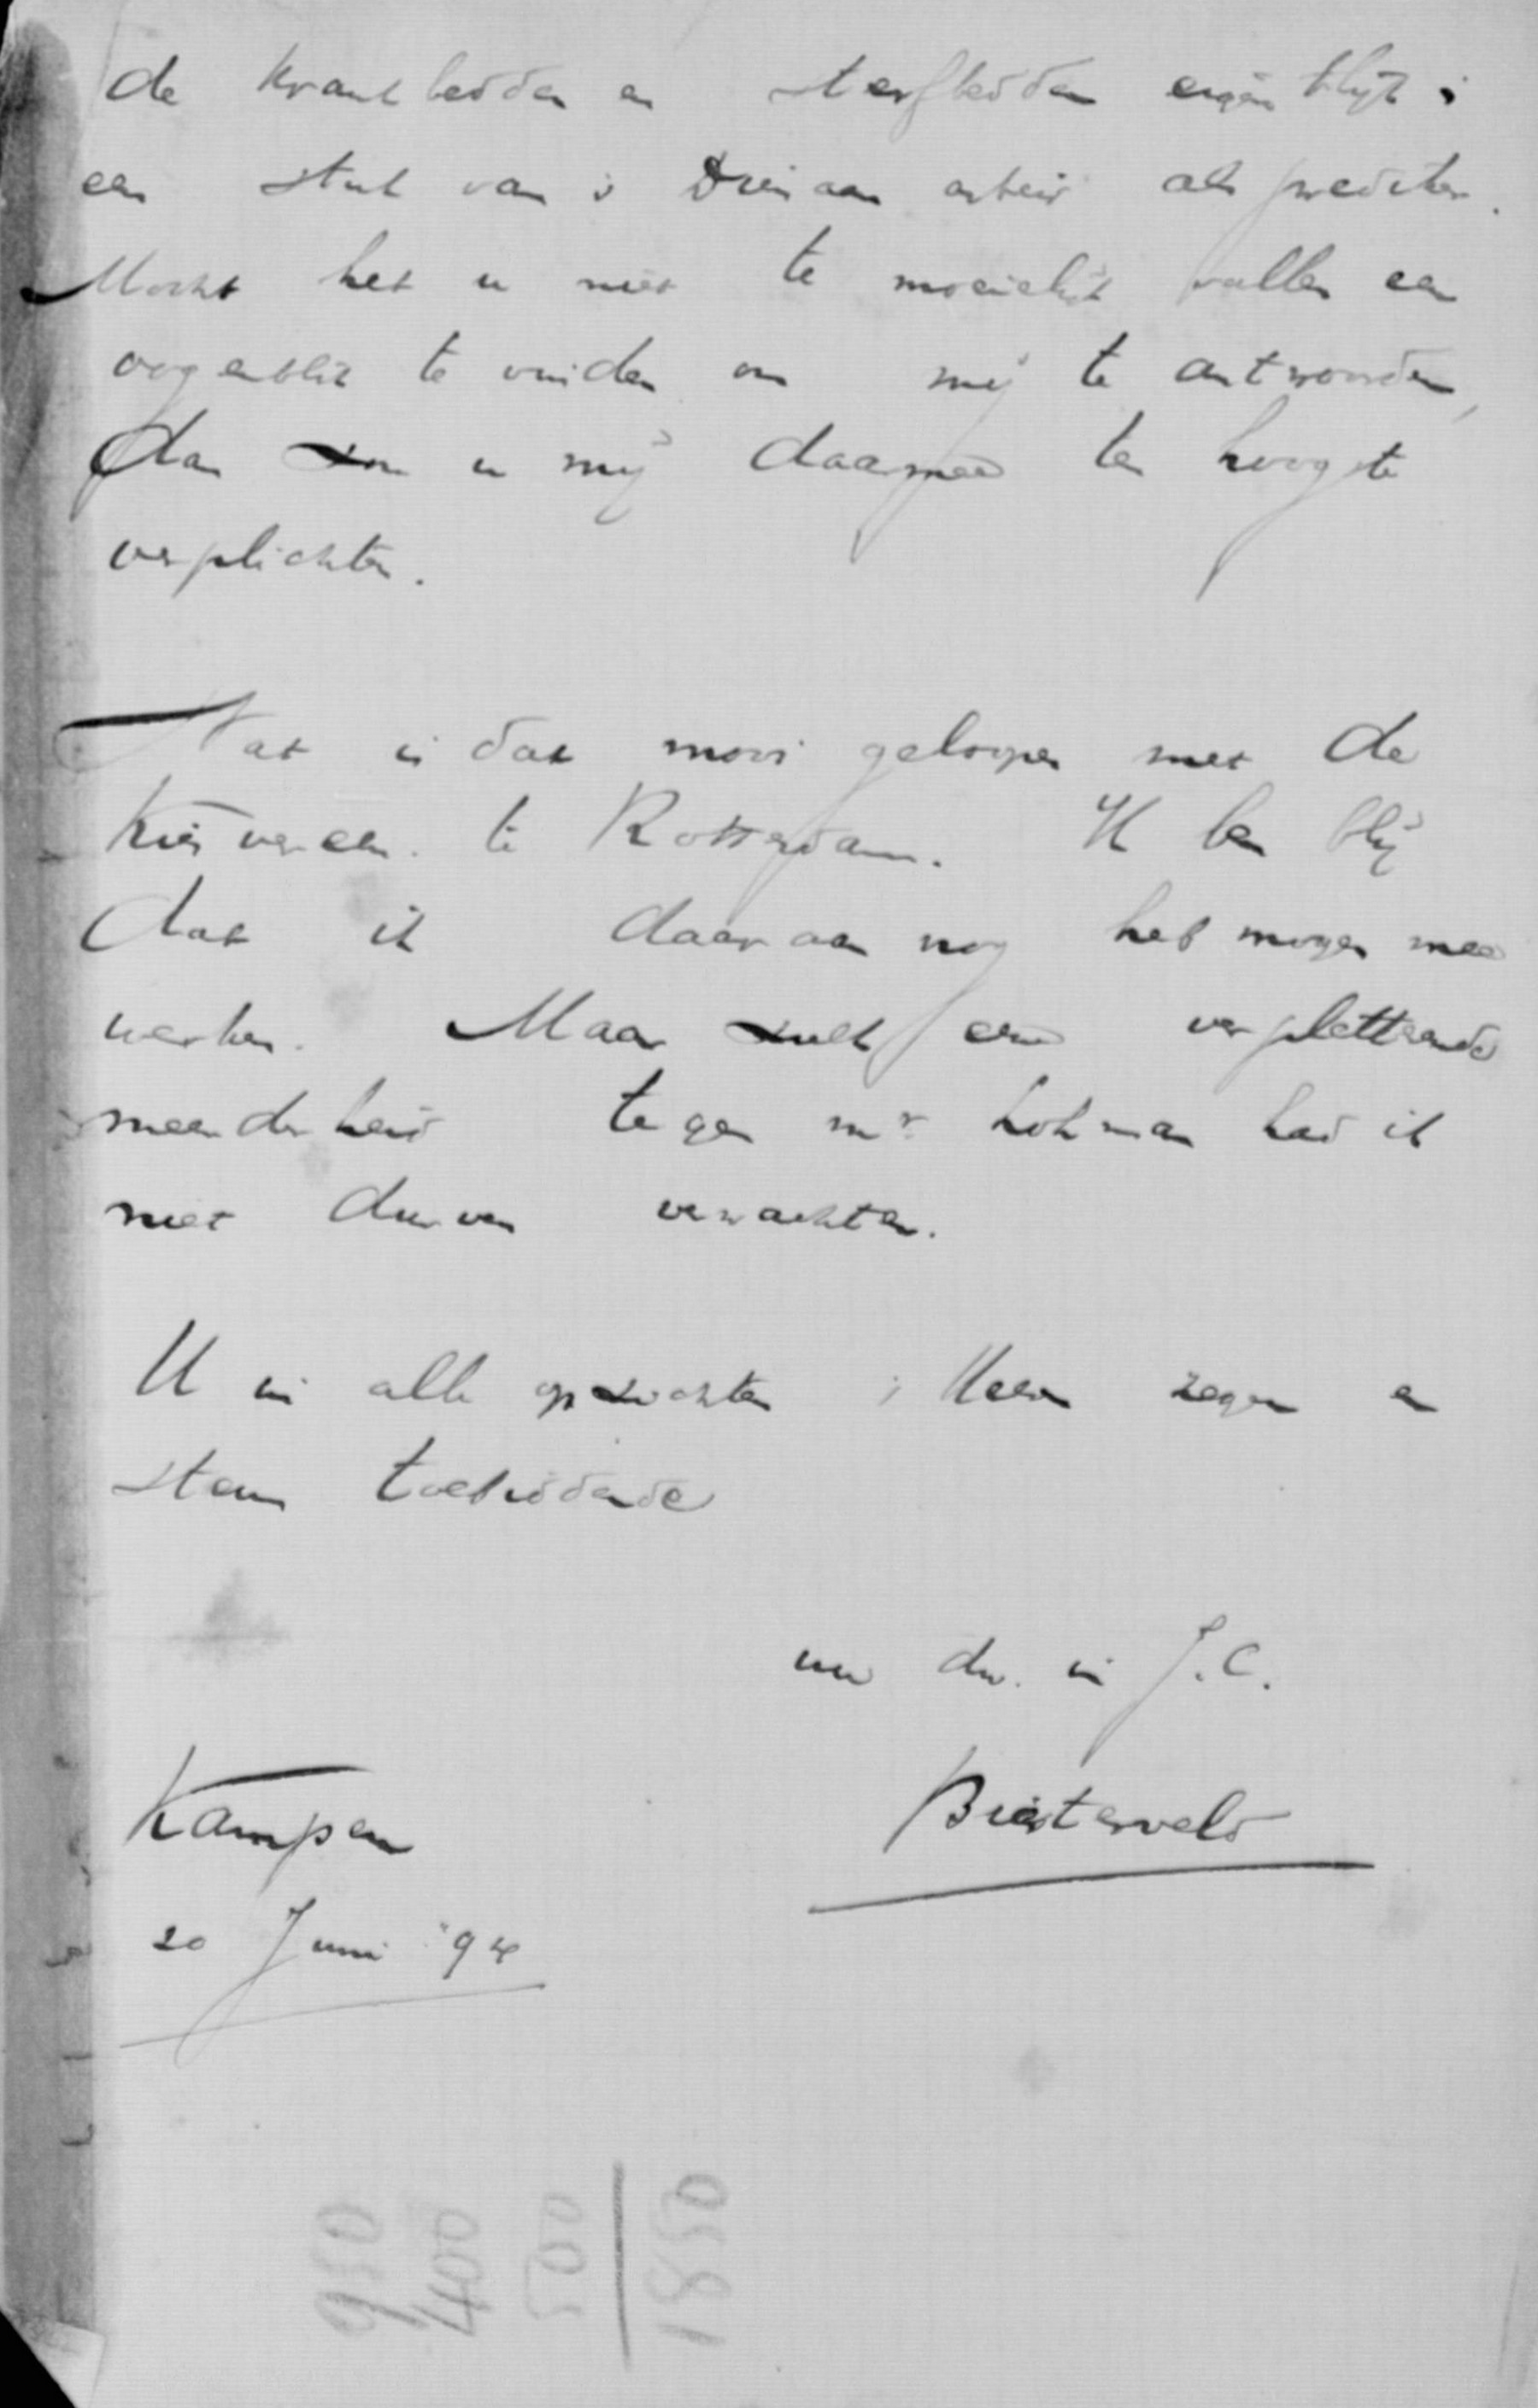 de krankbedden en sterfbedden eigenlijk is
een stuk van 's Dienaars arbeid als prediker.
Mocht het u niet te moeielijk vallen een
oogenblik te vinden om mij te antwoorden,
dan zou u mij daarmeê ten hoogste
verplichten.
Wat is dat mooi geloopen met de
Kiesvereen. te Rotterdam. Ik ben blij
dat ik daaraan nog heb mogen mee
werken. Maar zulk eene verpletterende
meerderheid tegen mr Lohman had ik
niet durven verwachten.
U in alle opzichten 's Heeren zegen en
steun toebiddende
uw dw. in J.C.
Biesterveld
Kampen
20 Juni '94
950
400
500
1850